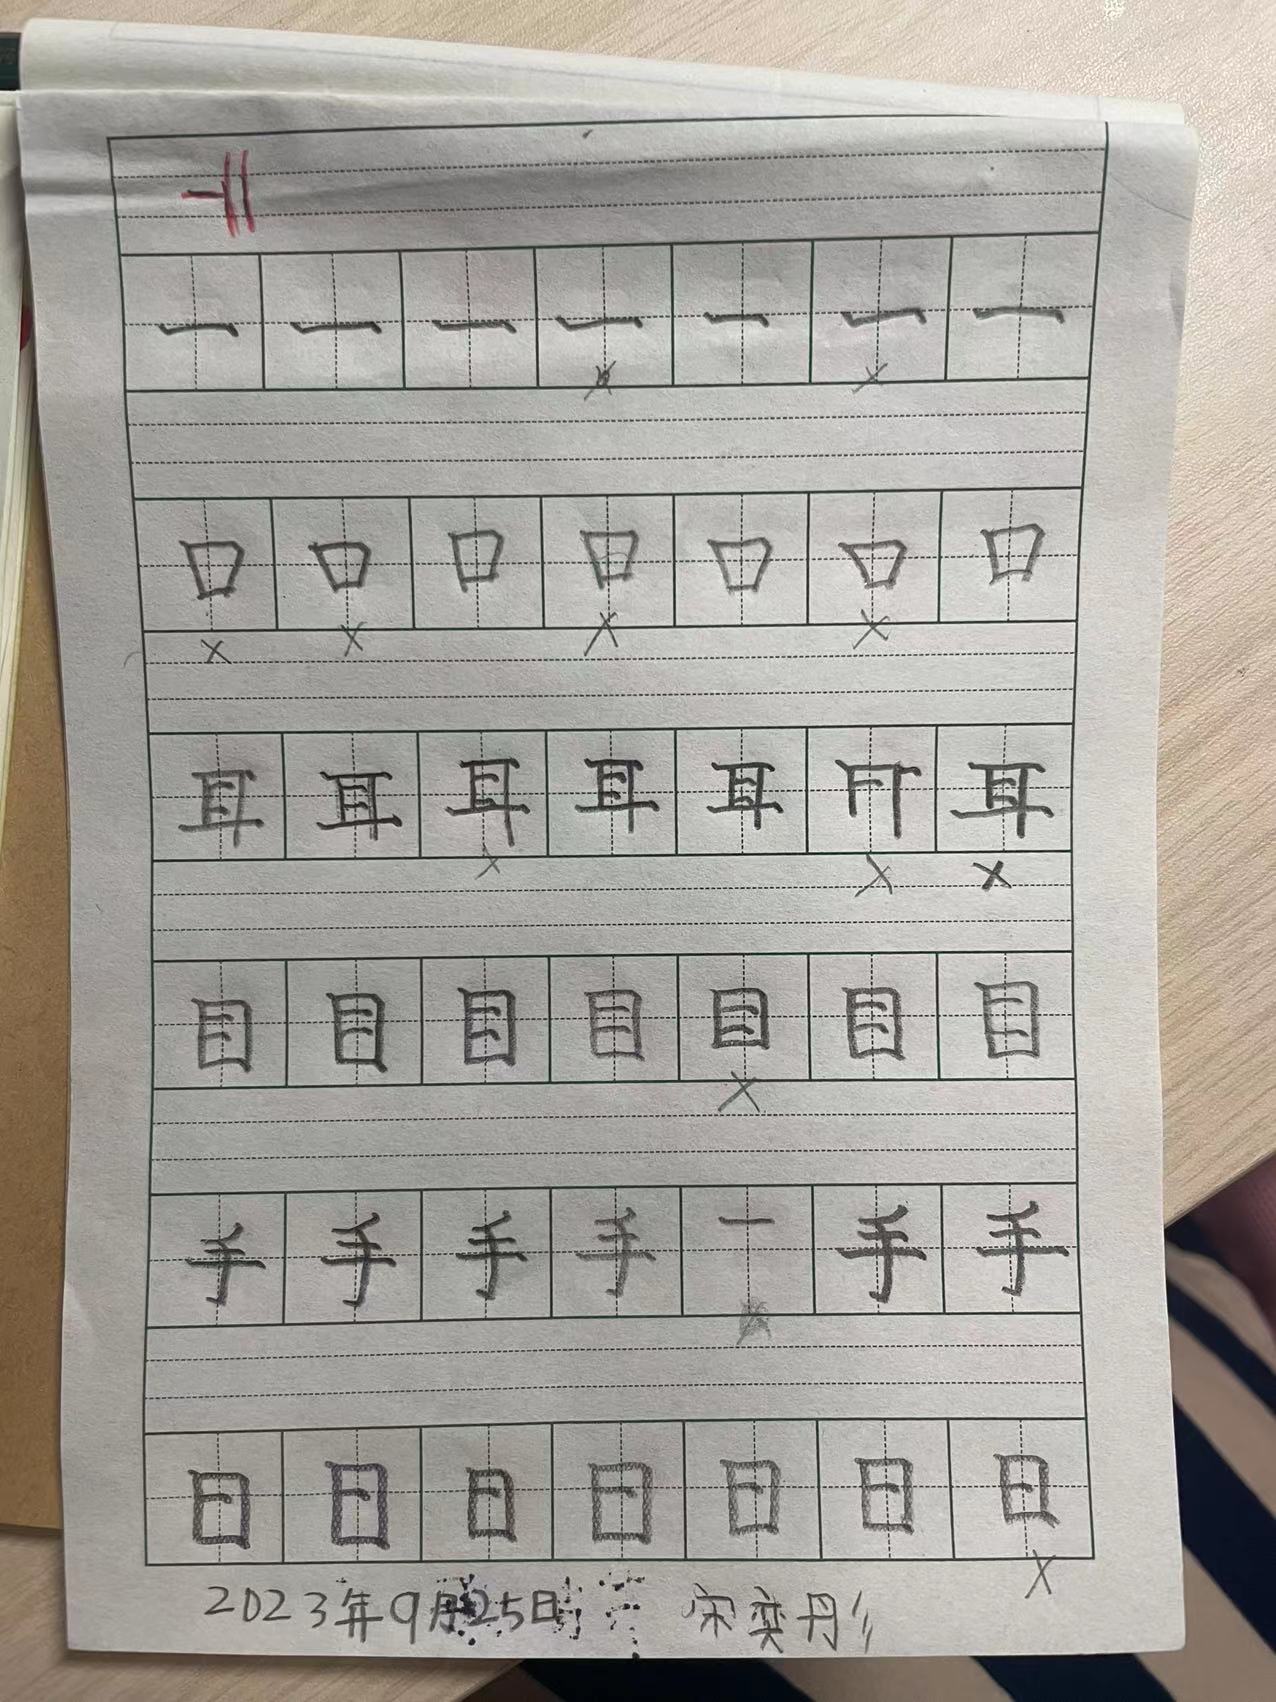 一 一 一 一 一 一 一
口 口 口 口 口 口 口
耳 耳 耳 耳 耳 耳
目 目 目 目 目 目 目
手 手 手 手 一 手 手
日 日 日 日 日 日 日
2023年9月25日 宋奕彤